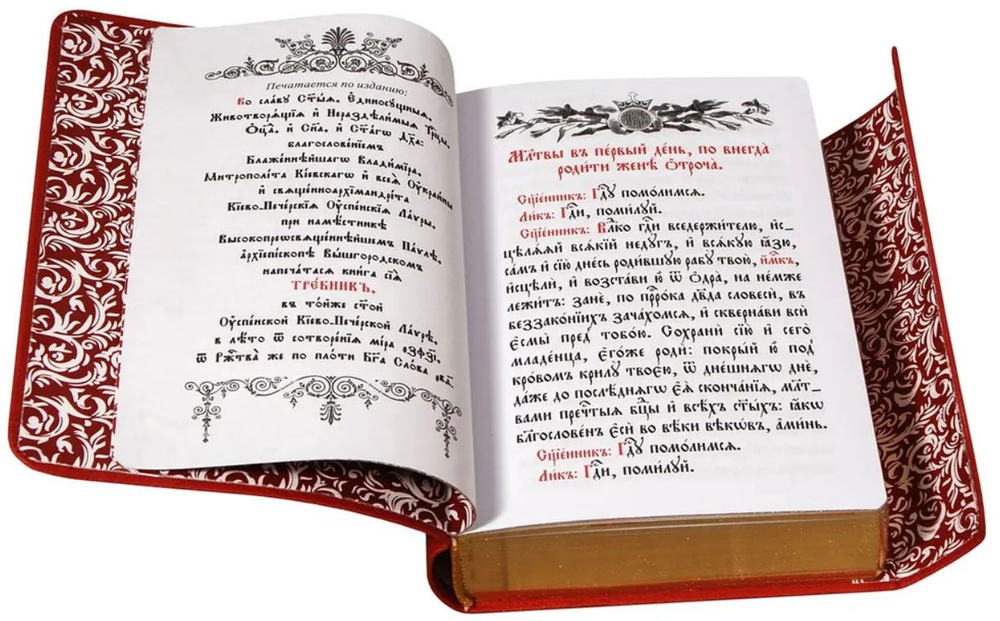 Печатается по изданию:
Во сла́ву Ст҃ы́ѧ, Є҆диносꙋ́щныѧ,
Животворѧ́щїѧ и҆ Нераздѣ́лимыѧ Трⷪ҇цы,
Ѻ҆ц҃а̀, и҆ Сн҃а, и҆ Ст҃а́гѡ Дх҃а:
благослове́нїемъ
Блаже́ннѣйшагѡ Влади́мїра,
Митрополі́та Кі́евскагѡ и҆ всеѧ̀ Оу҆краи́ны
и҆ свѧще́нноа҆рхїмандрі́та
Кі́ево-Пече́рскїѧ Оу҆спе́нскїѧ Ла́ѵры,
при намѣ́стникѣ
Высокопреѡсвѧще́ннѣйшемъ Па́ѵлѣ,
а҆рхїепі́скопѣ Вы́шгородскомъ
напеча́тасѧ кни́га сїѧ̀
ТРЕ́БНИКЪ,
въ то́йже ст҃о́й
Оу҆спе́нской Кі́ево-Пече́рской Ла́ѵрѣ,
в лѣ́то ѿ сотворе́нїѧ мі́ра ҂зфз҃і,
ѿ Рж҃тва̀ же по пло́ти Бг҃а Сло́ва
Мл҃твы въ пе́рвый де́нь, по внегда̀
роди́ти женѣ̀ ѻ҆троча̀.
Сщ҃е́нникъ: Гдⷭ҇ꙋ помо́лимсѧ.
Ли́къ: Гдⷭ҇и, поми́лꙋй.
Сщ҃е́нникъ: Влⷣко гдⷭ҇и вседержи́телю, и҆с_
цѣлѧ́ѧй всѧ́кїй недꙋ́гъ, и҆ всѧ́кꙋю ꙗ҆́зю,
са́мъ и҆ сїю̀ дне́сь роди́вшꙋю рабꙋ̀ твою̀, и҆́м҃къ,
и҆сцѣлѝ, и҆ возста́ви ю҆̀ ѿ ѻ҆дра̀, на не́мже
лежи́тъ: занѐ, по прⷪ҇ро́ка дв҃да словесѝ, въ
беззако́нїихъ зача́хомсѧ, и҆ скверна́ви всѝ
є҆смы̀ пред̾ тобо́ю. Сохранѝ сїю̀ и҆ сего̀
младе́нца, є҆го́же родѝ: покры́й ю҆̀ под̾
кро́вомъ крилꙋ̀ твоє́ю, ѿ дне́шнѧгѡ днѐ,
да́же до послѣ́днѧгѡ є҆ѧ̀ сконча́нїѧ, мл҃т_
вами пречⷭ҇тыѧ бцⷣы и҆ всѣ́хъ ст҃ы́хъ: ꙗ҆́кѡ
бл҃гослове́нъ є҆сѝ во вѣ́ки вѣкѡ́въ, а҆ми́нь.
Сщ҃е́нникъ: Гдⷭ҇ꙋ помо́лимсѧ.
Ли́къ: Гдⷭ҇и, поми́лꙋй.